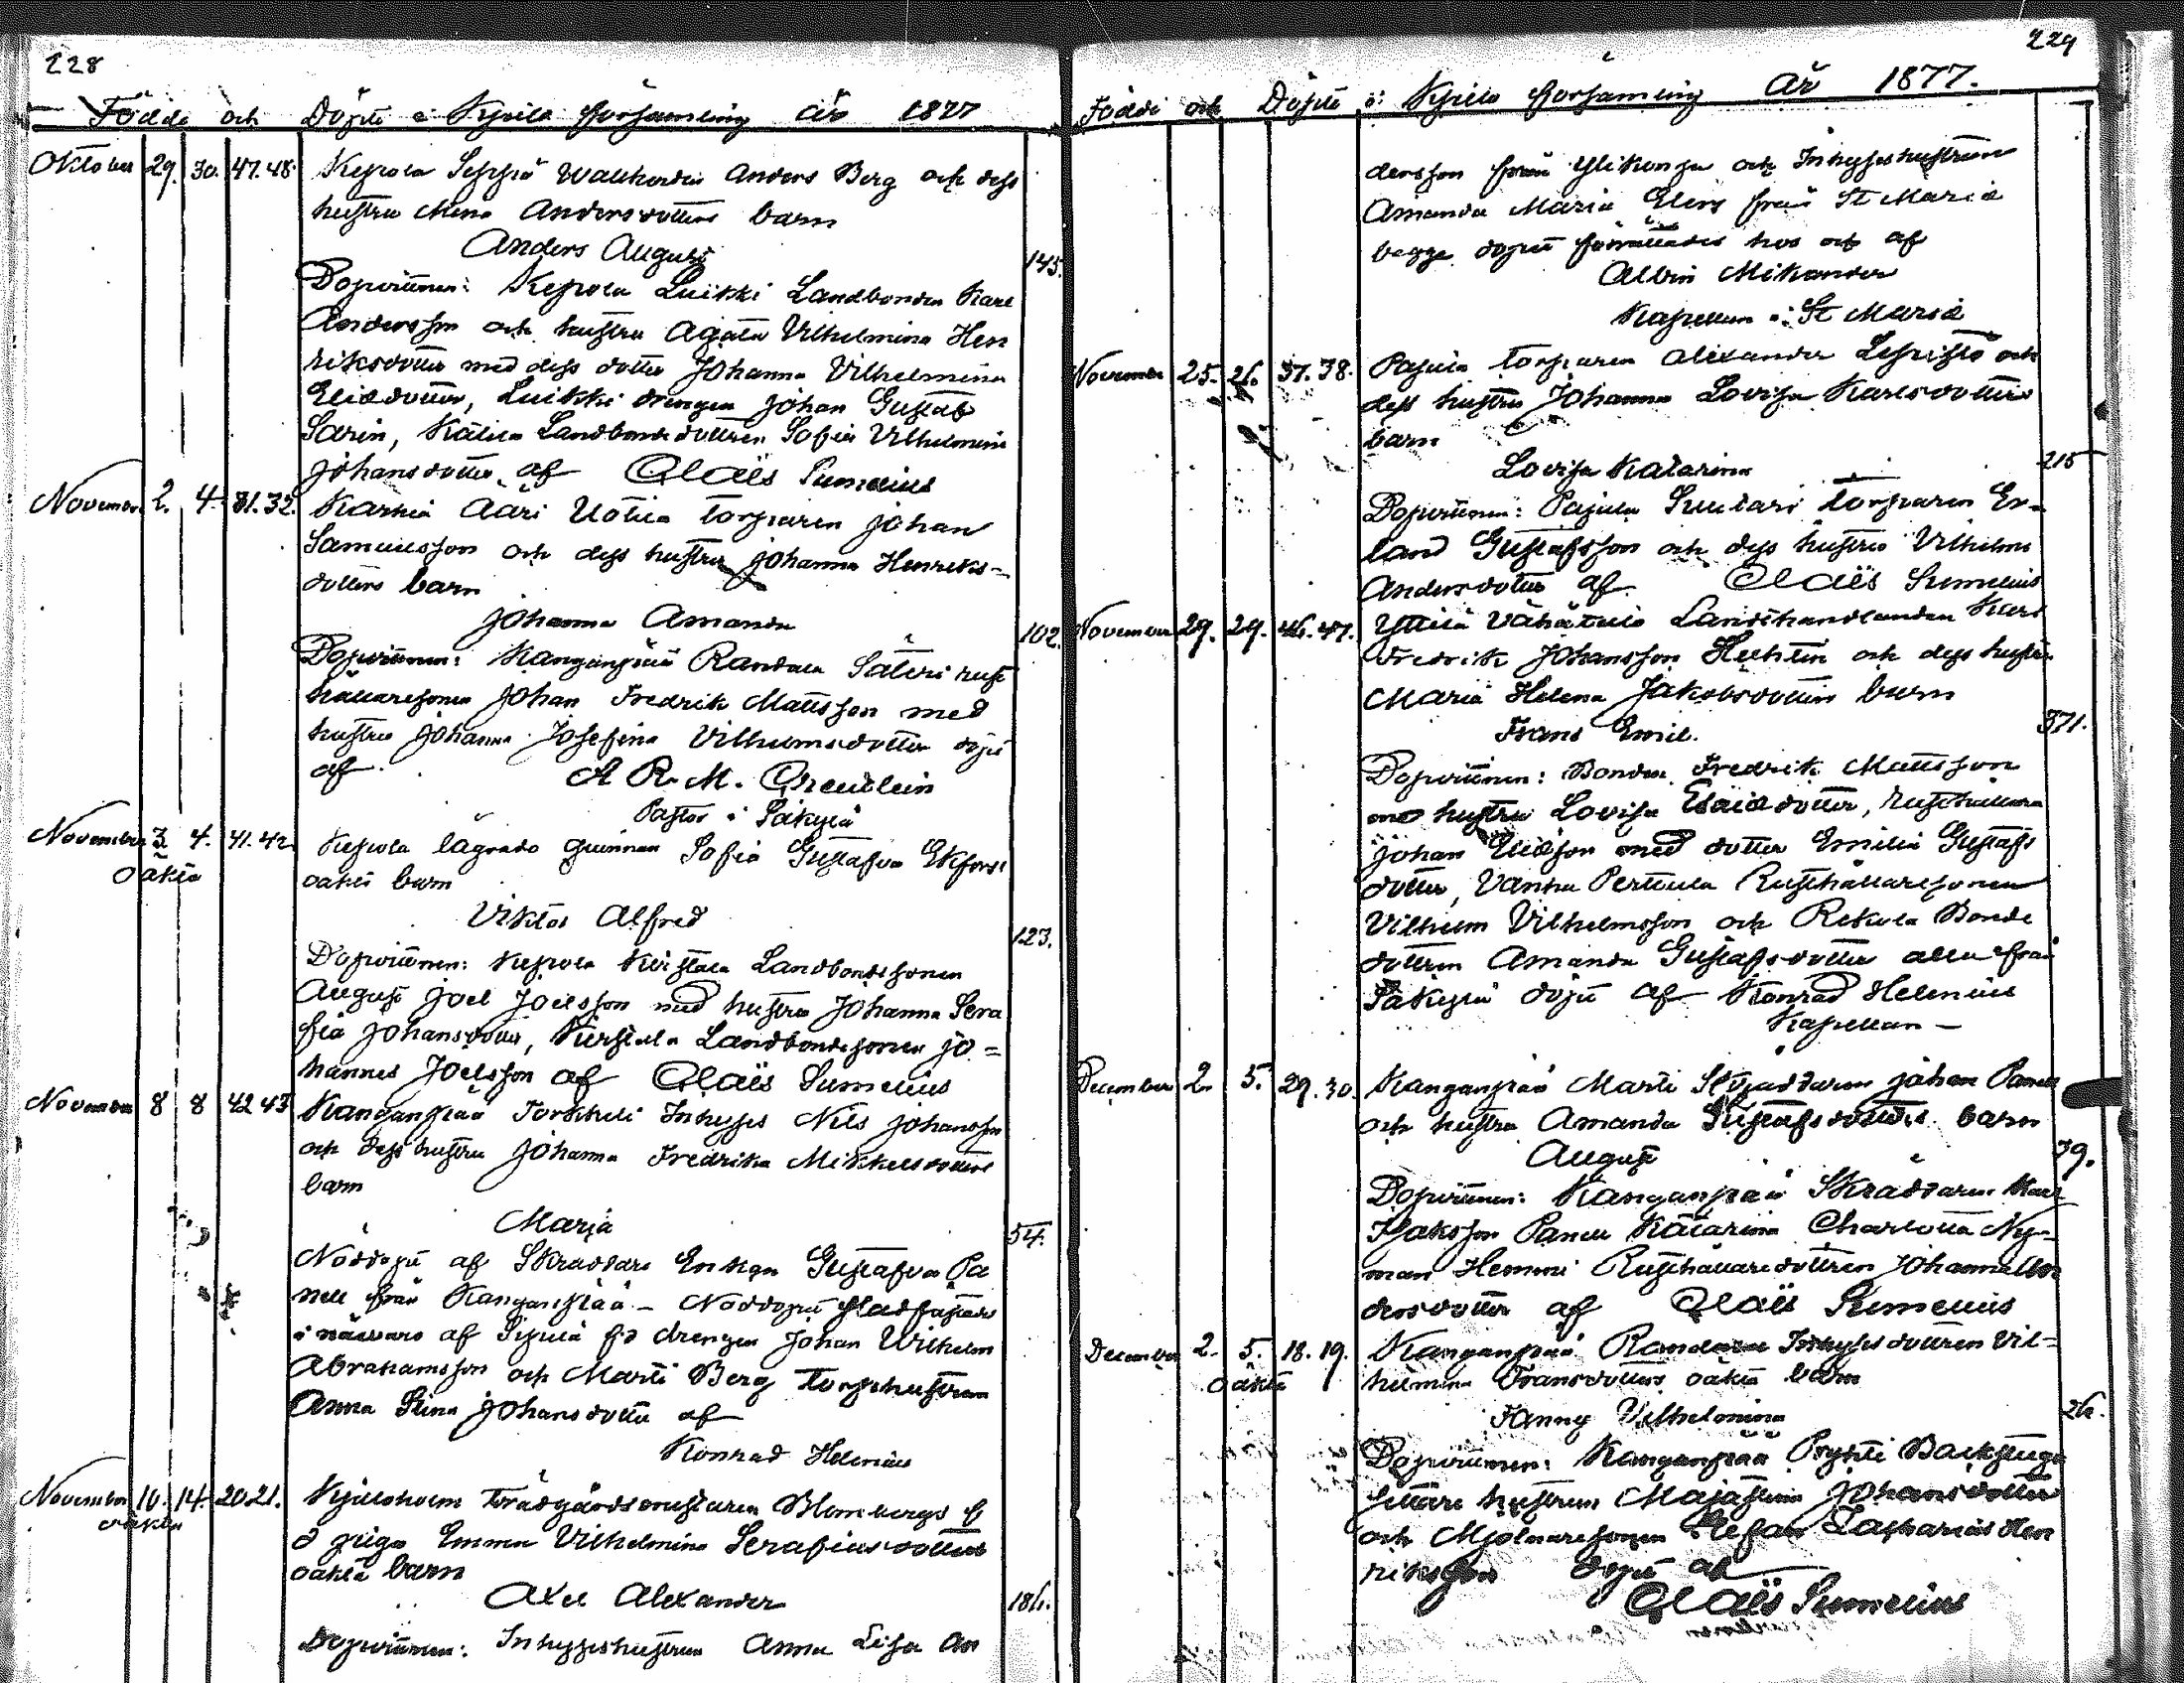 228
Födde och Döpte i Kjulo församling år 1877
Oktober 29. 30. 47.48. Kepola Seppä Waltkordin Anders Berg och dess
hustru Mina Andersdotters barn
Anders August
145.
Dopvittnen: Kepola Luikki Landbonden Karl
Andersson och hustru Agata Vilhelmina Hen
riksdotter med dess dotter Johanna Vilhelmina
Eliedotter, Luikki drengen Johan Gustaf
Sarin, Landbondedottren Sofia Vilhelmina
Johansdotter af Claës Sumelius
November 2. 4. 31.32. Karhia Ääri Uotila torparen Johan
Samuelsson och dess hustru Johanna Henriks=
dotters barn
Johanna Amanda
102.
Dopvittnen: Kanganpää Randala Säteri rust
hållaresonen Johan Fredrik Mattsson med
hustru Johanna Josefina Vilhelmsdotter döpt
af A R. M.
Pastor i Säkylä
November 3 4. 41.42. Kepola lägrade qvinnan Sofia Gustafva Ekfors
oäkta
oäkta barn
Viktor Alfred
123.
Dopvittnen: Kepola Landbondesonen
August Joel Joelsson med hustru Johanna Sera
fia Johansdotter, Landbondesonen Jo=
hannes Joelsson af Claës Sumelius
November 8 8 42 43 Kanganpää Torkkeli Inhyses Nils Johansson
och dess hustru Johanna Fredrika Mikkelsdotters
barn
Maria
54.
Nöddöpt af Skräddare Enkan Gustafva Pa
nell från Kanganpää - Nöddopet stadfästades
i närvaro af drengen Johan Wilhelm
Abrahamsson och Martti Berg torpshustrun
Anna Stina Johansdotter af
Konrad Helenius
November 10. 14. 20.21. Kjuloholm trädgårdsmästaren Blombergs f
oäkta
d piga Emma Vilhelmina Serafiasdotters
oäkta barn
Axel Alexander
186.
Dopvittnen: Inhyseshustrun Anna Lisa An
229
Födde och Döpte i Kjulo församling År 1877.
dersson från Ylikonsa och Inhyseshustrun
Amanda Maria Elers från St Maria
begge dopet förrättades hos och af
Albin Mikander
Kapellan i St Maria
November 25. 26. 37.38. Pajula torparen Alexander Lepistö och
dess hustru Johanna Lovisa Karlsdotters
barn
Lovisa Katarina
215
Dopvittnen: Pajula Suutari torparen Er=
land Gustafsson och dess hustru Vilhelmi
Andersdotter af Claës Sumelius
November 29. 29. 46.47. Uttila Vähätalo Landthandlanden Karl
Fredrik Johansson Huhtin och dess hustru
Maria Helena Jakobsdotters barn
Frans Emil.
371.
Dopvittnen: Bonden Fredrik Mattsson
med hustru Lovisa Esaiedotter, Rusthållare
Johan Eliasson med dotter Emilia Gustafs
dotter, Vanha Perttula Rusthållaresonen
Vilhelm Vilhelmsson och Rekola Bonde
dottren Amanda Gustafsdotter alla från
Säkylä döpt af Konrad Helenius
Kapellan -
December 2. 5. 29.30. Kanganpää Martti Skräddaren Johan Panell
och hustru Amanda Gustafsdotters barn
August
39.
Dopvittnen: Kanganpää Skräddaren Karl
Isaksson Panell Katarina Charlotta Ny=
man Hemmi Rusthållaredottren Johanna An
dersdotter af Claës Sumelius
December 2. 5. 18.19. Kanganpää Randala Inhysesdottren Vil=
oäkta
helmina Fransdotters oäkta barn
Fanny Vilhelmina
26.
Dopvittnen: Kanganpää Backstugu
sittare hustrun Majastina Johansdotter
och Mjölnaresonen Stefan Zacharias Hen
riksson döpt af
Claës Sumelius